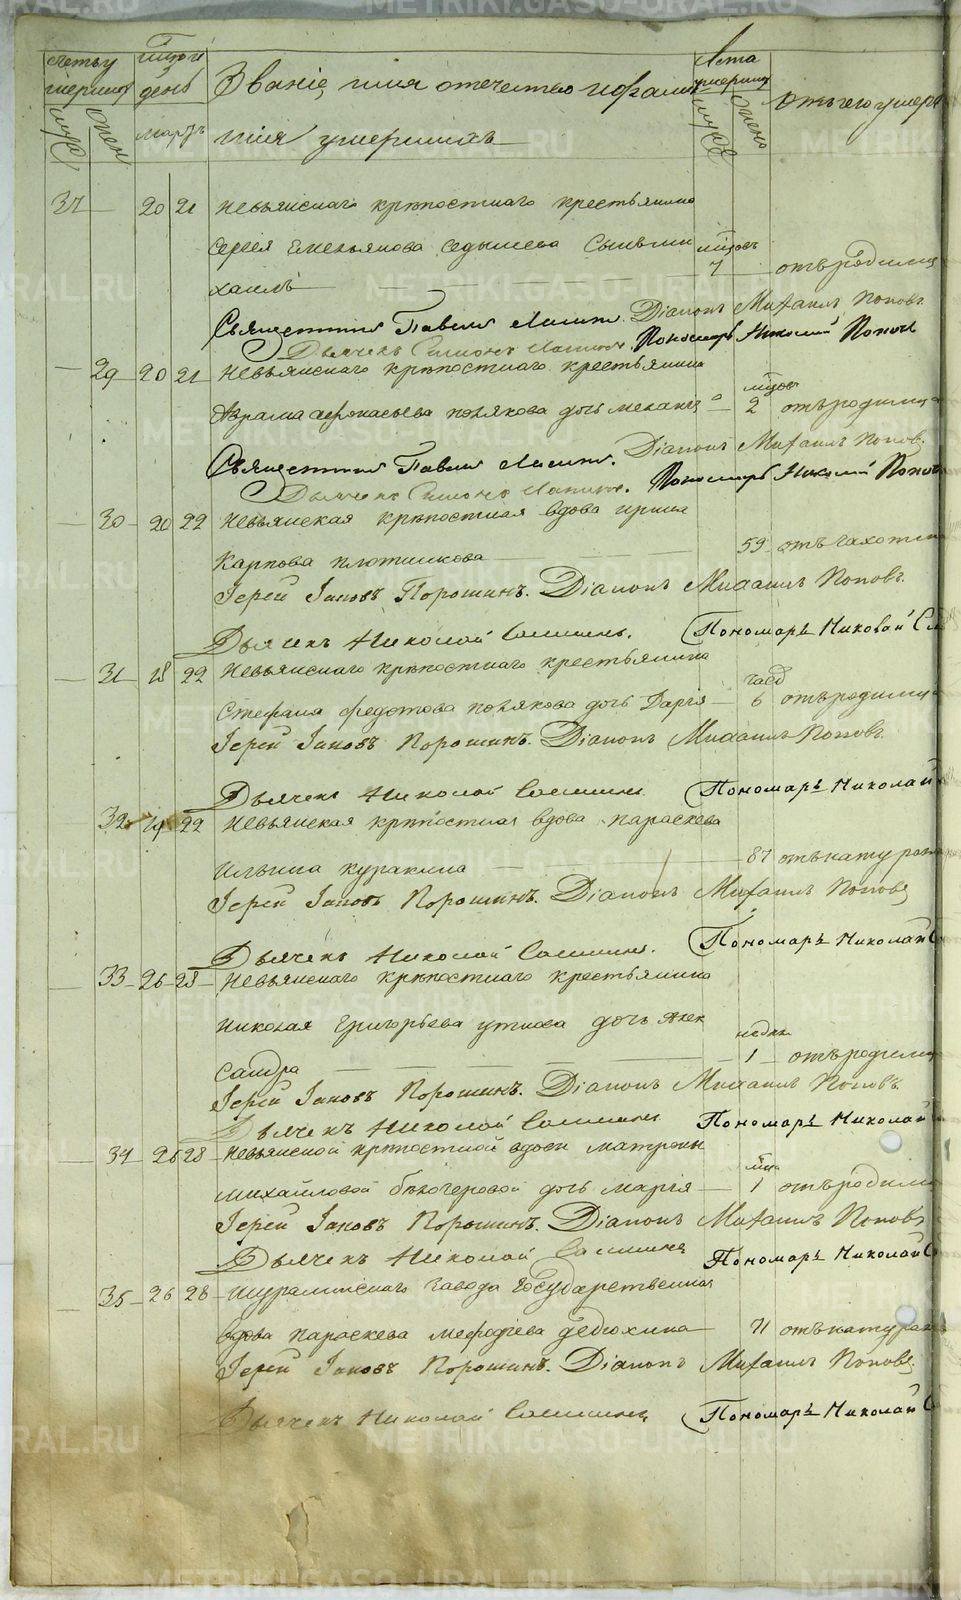 Счетъ умершихъ
мѣсяцъ и день
Званіе, имя отечество и фамилія умершихъ
Лѣта умершихъ
Отъ чего умеръ
мартъ
муж.
жен.
муж.
жен.
37 20 21 Невьянскаго крѣпостнаго крестьянина
Сергея Емельянова Седышева сынъ Ми
мѣсяцъ
хаилъ 7 отъ родимца
Священникъ Павелъ Діаконъ Михаилъ Поповъ
Дьячекъ Симонъ Пономарь Николай Попов
29 20 21 Невьянскаго крѣпостнаго крестьянина
мѣсяц
Абрама Афонасьева Полякова дочь Меланія 2 отъ родимца
Священникъ Павелъ Діаконъ Михаилъ Попов.
Дьячекъ Симонъ Пономарь Николай Попов
30 20 22 Невьянская крѣпостная вдова Ирина
Карпова Плотникова 59 отъ чахотки
Іерей Іаковъ Порошинъ. Діаконъ Михаилъ Поповъ.
Дьячекъ Николай Пономарь Николай
31 18 22 Невьянскаго крѣпостнаго крестьянина
часо
Стефана Федотова Полякова дочь Дарія 6 отъ родимца
Іерей Іаковъ Порошинъ. Діаконъ Михаилъ Поповъ
Дьячекъ Николай Пономарь Николай
32 19 22 Невьянская крѣпостная вдова Параскева
Ильина Куракина 87 отъ натурал
Іерей Іаковъ Порошинъ. Діаконъ Михаилъ Поповъ
Дьячекъ Николай Пономарь Николай
33 26 28 Невьянскаго крѣпостнаго крестьянина
Николая Григорьева Уткова дочь Алек
недѣл
сандра 1 отъ родимц
Іерей Іаковъ Порошинъ. Діаконъ Михаилъ Поповъ
Дьячекъ Николай Пономарь Николай
34 26 28 Невьянской крѣпостной вдовы Матроны
мца
Михайловой Бѣлочеровой дочь Марія 1 отъ родим
Іерей Іаковъ Порошинъ. Діаконъ Михаилъ Поповъ
Дьячекъ Николай Пономарь Николай
35 26 28 Шуралинскаго завода государственная
вдова Параскева Мефодіева Дедюхина 71 отъ натурал
Іерей Іаковъ Порошинъ. Діаконъ Михаилъ Поповъ
Дьячекъ Николай Пономарь Николай
METRIKI.GASO-URAL.RU